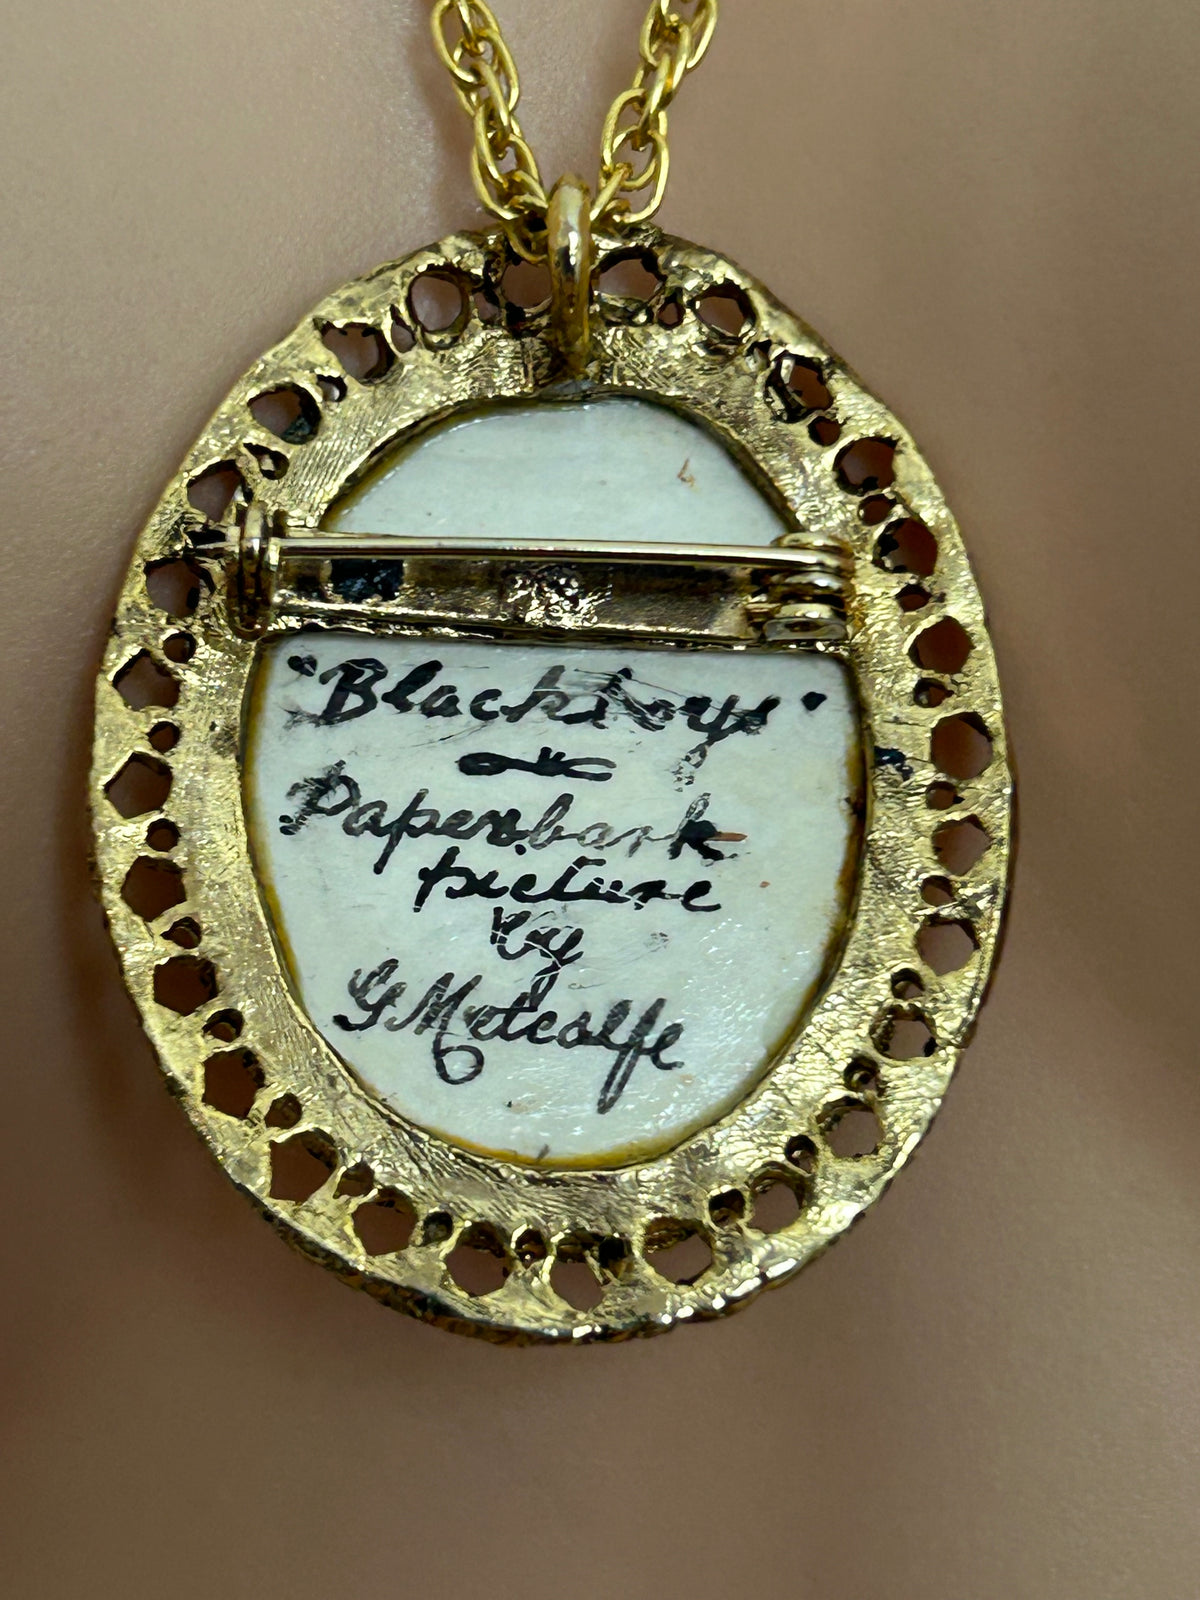 "Blackboys"
Paperbark
picture
by
G Metcalfe